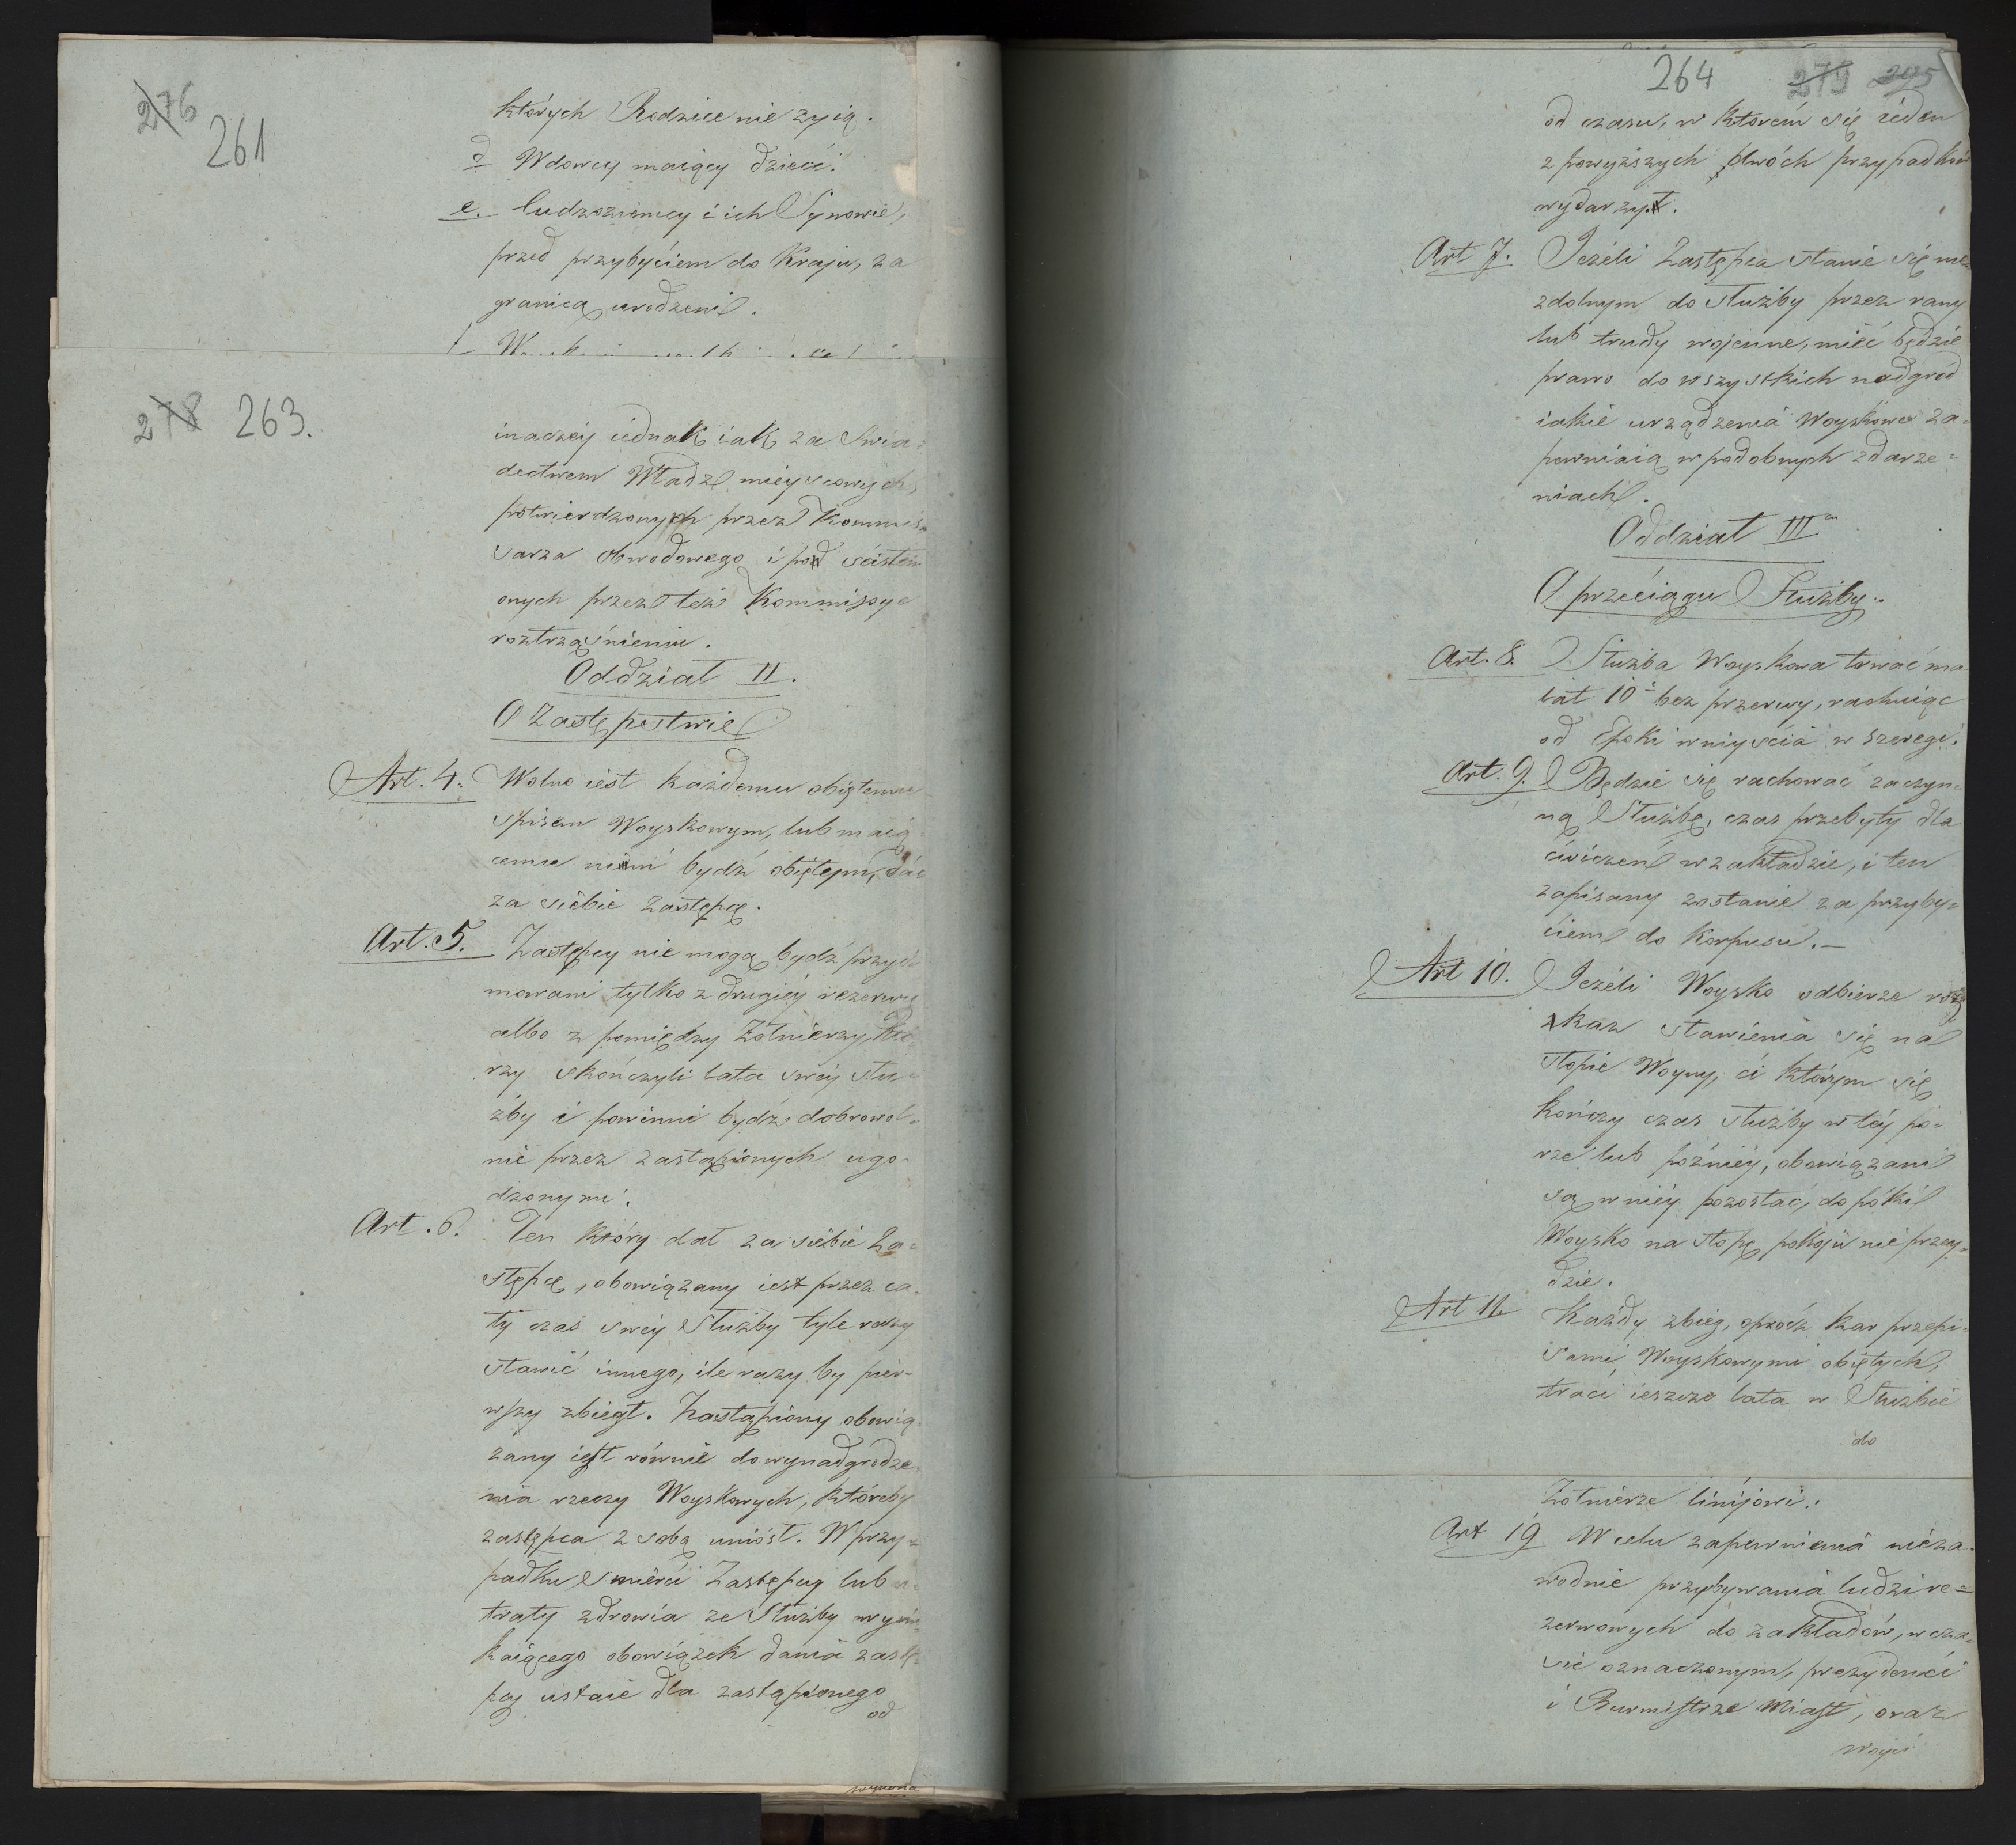 276
261
których Rodzice nie zyią.
d Wdowcy maiący dzieci.
e. Cudzoziemcy i ich Synowie,
przed przybyciem do Kraju, za
granicą urodzeni.
278 263.
inaczéy iednak iak za Swia=
dectwem Władz miéyscowych,
potwierdzonych przez Kommis=
sarza Obwodowego i pod scisłem
onych przez też Kommissye
roztrząśnieniu.
Oddział II.
O Zastępstwie
Art. 4. Wolno iest każdemu obiętemu
spisem Woyskowym, lub maią
cemu nim bydź obiętym, dać
za siebie Zastępcę.
Art. 5. Zastępcy nie mogą bydź przyi=
mowani tylko z drugiéy rezerwy
albo z pomiędzy Zołnierzy, któ
rzy skończyli lata swéy słu=
żby i powinni bydź dobrowol=
nie przez zastąpionych ugo=
dzonymi.
Art. 6. Ten który dał za siebie Za=
stępcę, obowiązany iest przez ca=
ły czas swéy Służby tyle razy
stawić innego, ile razy by pier=
wszy zbiegł. Zastąpiony obowią=
zany iest równie do wynadgrodze=
nia rzeczy Woyskowych, któreby
zastępca z sobą uniósł. W przy=
padku Smierci Zastępcy lub u=
traty zdrowia ze Służby wyni=
kaiącego obowiązek dania zastę=
pcy ustaie dla zastąpionego
od
264 279 295
od czasu, w którém się ieden
z powyższych dwóch przypadków
wydarzył.
Art 7. Jeżeli Zastępca stanie się nie=
zdolnym do Służby przez rany
lub trudy wojenne, mieć będzie
prawo do wszystkich nadgród
iakie urządzenia Woyskowe za=
pewniaią w podobnych zdarze=
niach.
Oddział III
O przeciągu Służby.
Art. 8. Służba Woyskowa trwać ma
lat 10 bez przerwy, rachuiąc
od Epoki wniyścia w szeregi.
Art. 9. Będzie się rachować zaczyn=
ną Służbę, czas przebyty dla
ćwiczeń w zakładzie, i ten
zapisany zostanie za przyby=
ciem do Korpusu.—
Art 10. Jeżeli Woysko odbierze roz
kaz stawienia się na
stopie Woyny, ci którym się
kończy czas służby w téy po=
rze lub późniéy, obowiązani
są w niéy pozostać, dopóki
Woysko na stopę pokoju nie przey=
dzie.
Art 11. Każdy zbieg, oprócz kar przepi=
sami Woyskowymi obiętych,
traci ieszcze lata w Służbie
do
Zołnierze liniiowi.
Art 19 W celu zapewnienia nieza=
wodnie przybywania ludzi re=
zerwowych do zakładów, w cza=
sie oznaczonym, prezydenci
i Burmistrze Miast, oraz
woyci